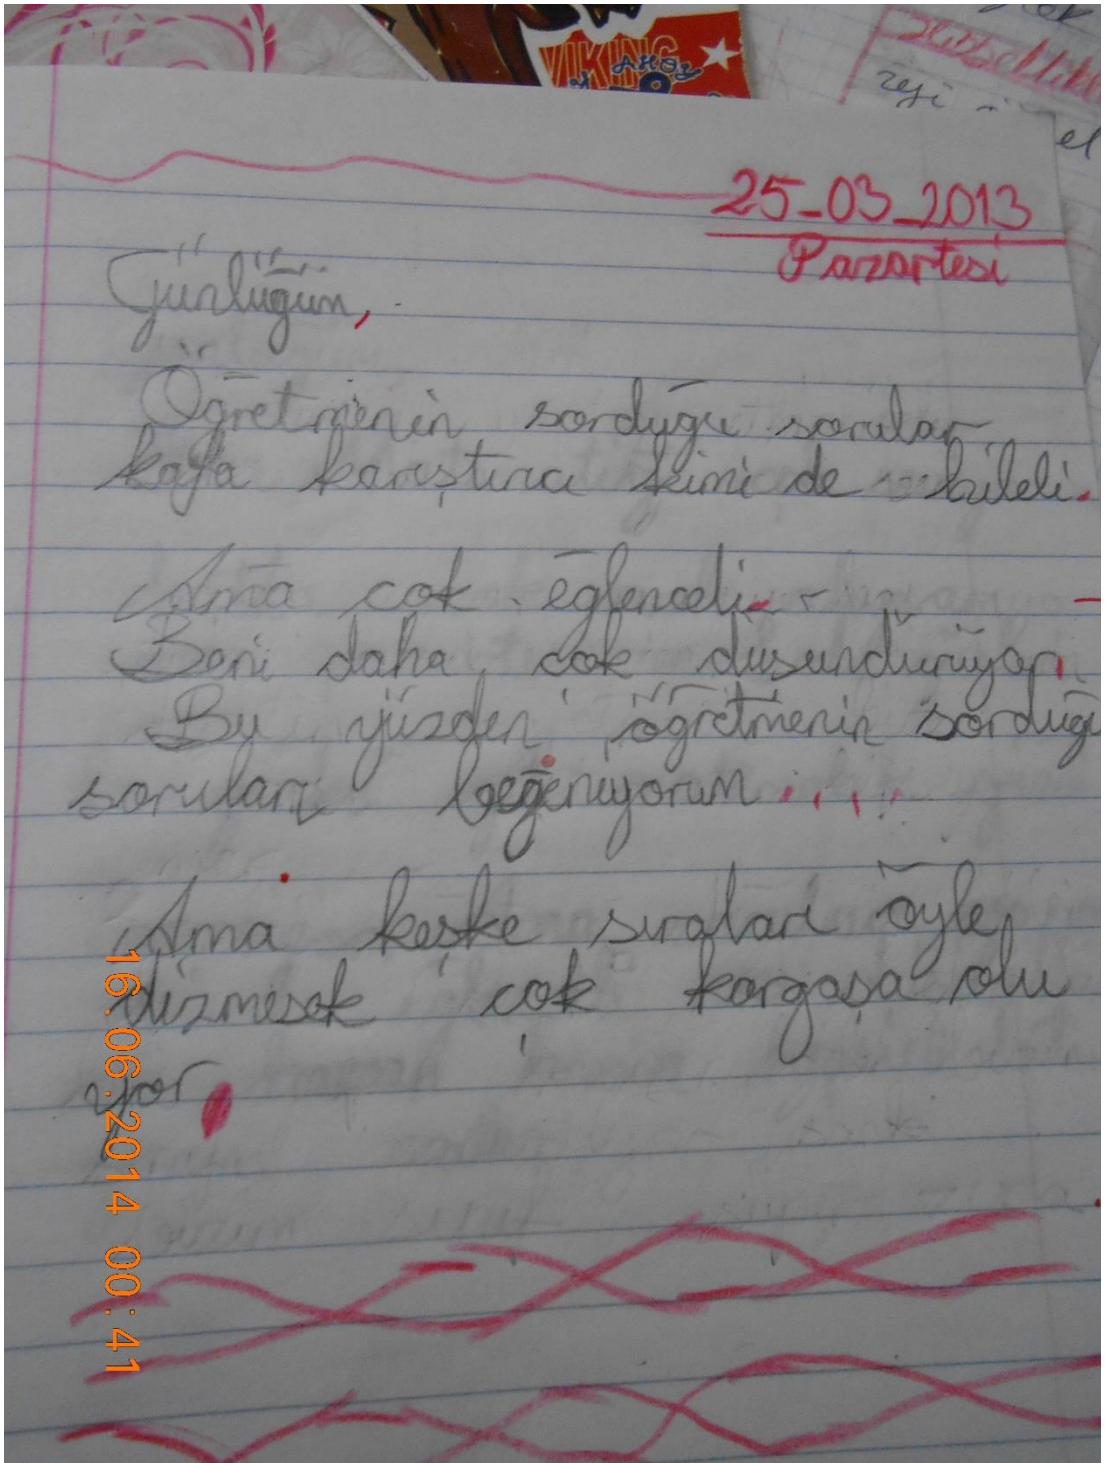 VIKING
AHOY
25-03-2013
Pazartesi
Günlüğüm,
Öğretmenin sorduğu sorular
kafa karıştırıcı kimi de hileli.
Ama çok eğlenceli
Beni daha çok düşündürüyor.
Bu yüzden öğretmenin sorduğu
soruları beğeniyorum....
Ama keşke sıraları öyle
dizmesek çok kargaşa olu
yor.
16.06.2014 00:41